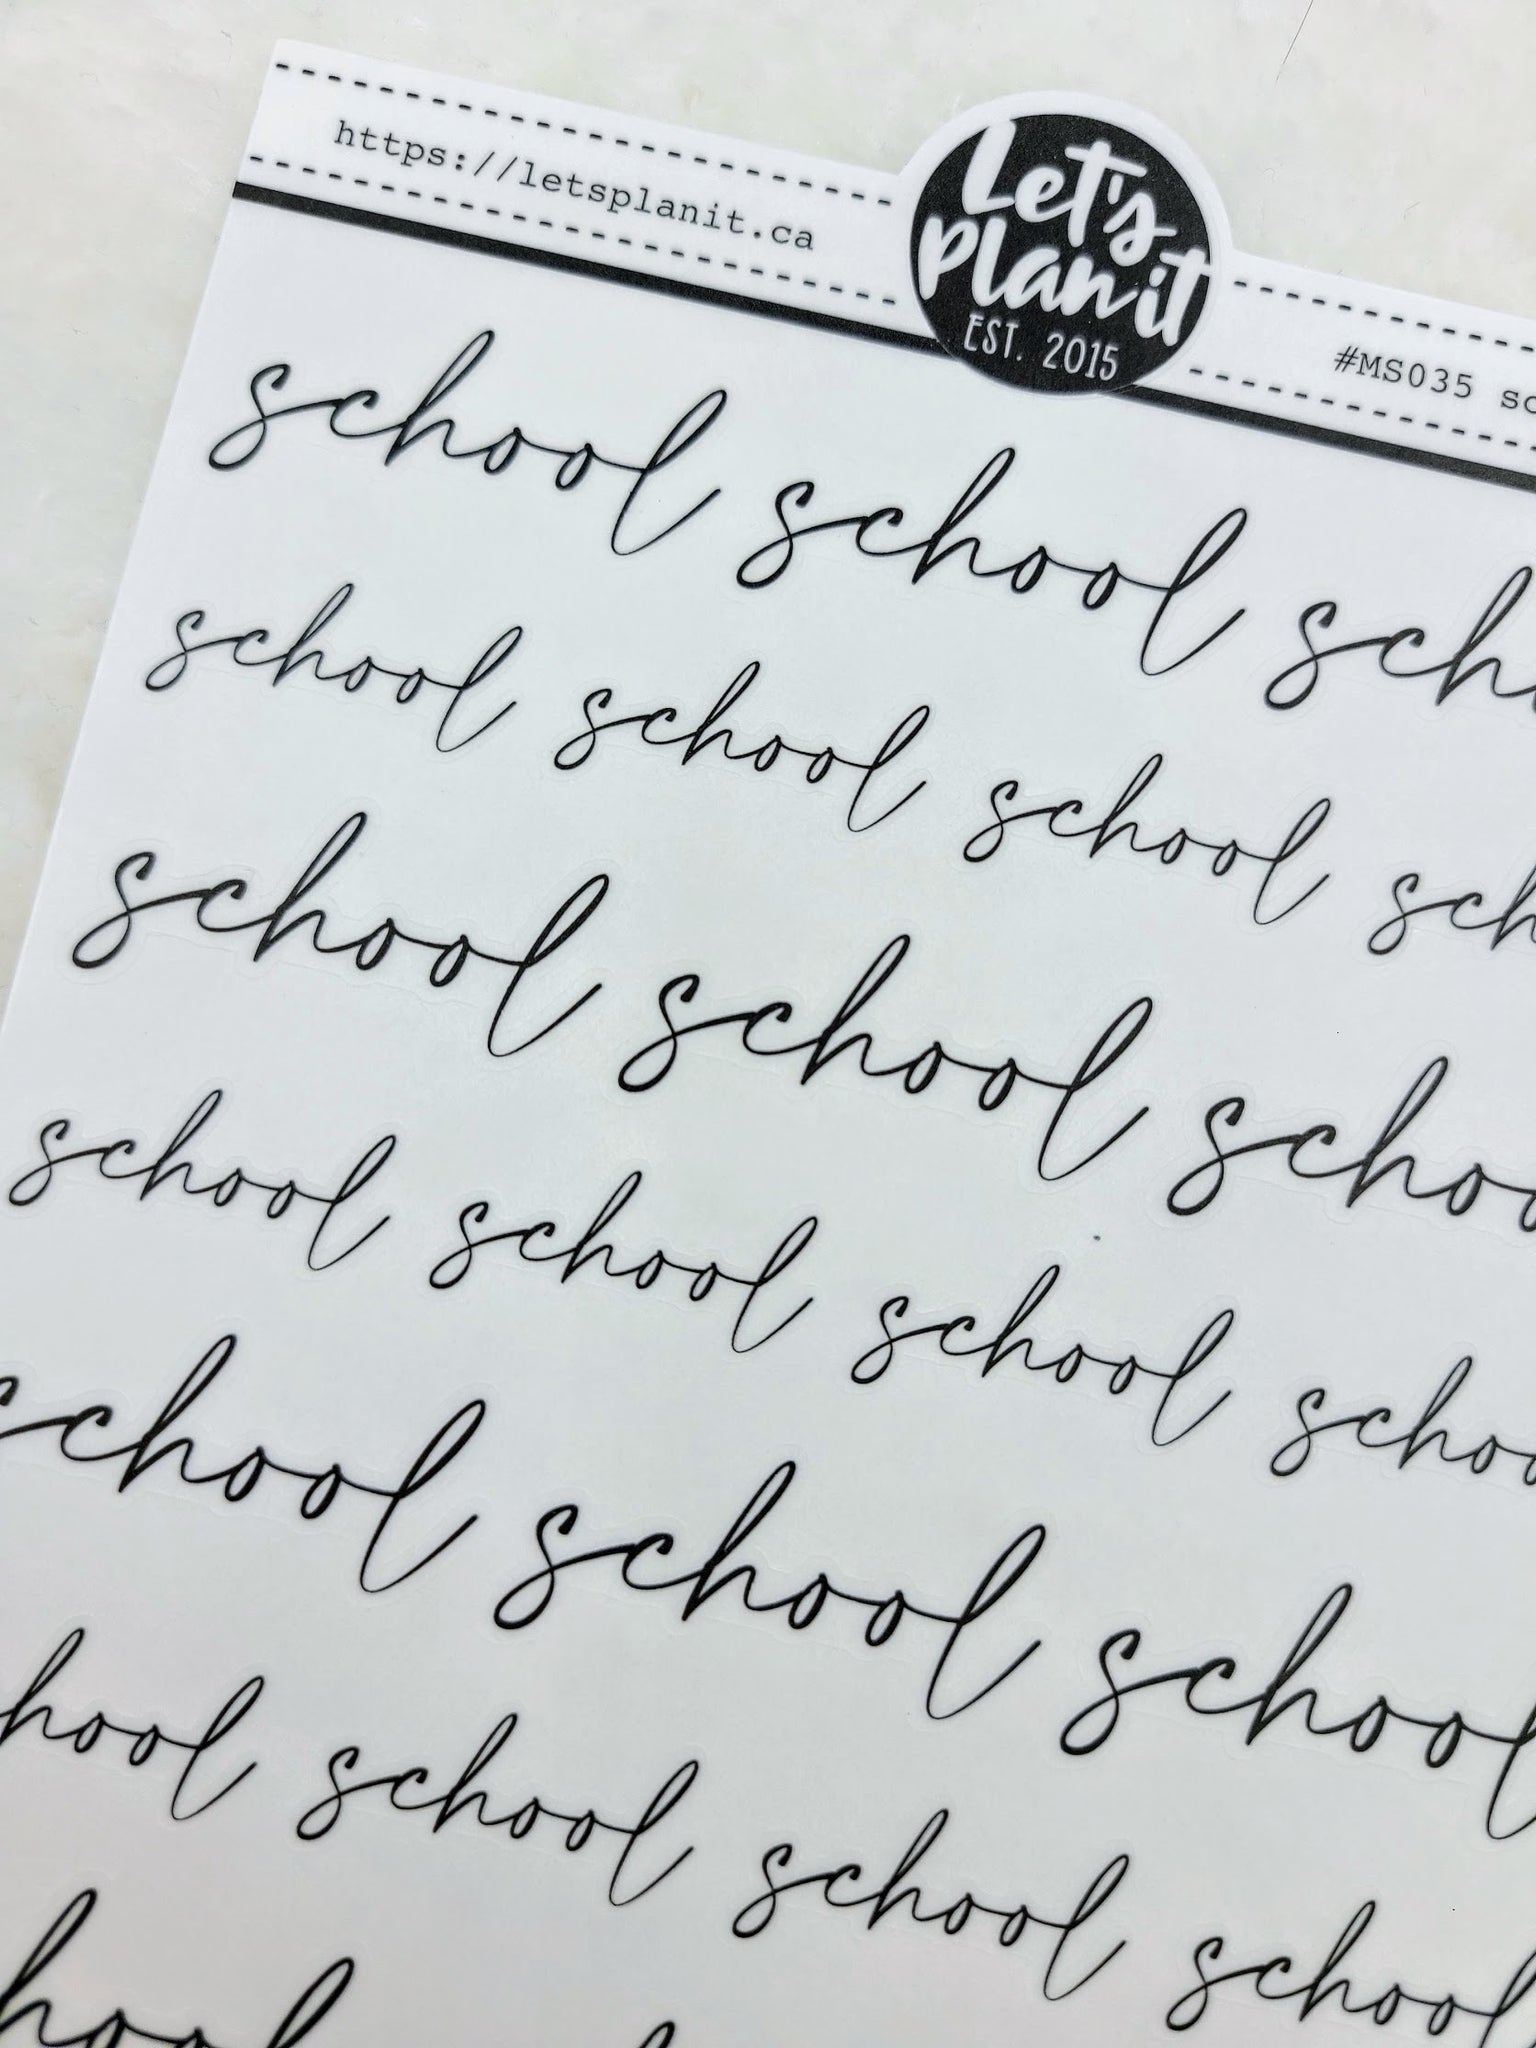 https://letsplanit.ca
Let's
Plan it
EST. 2015
#MS035 sc
school school scho
school school school sch
school school schoo
school school school schoo
school school school
hool school school school
hool